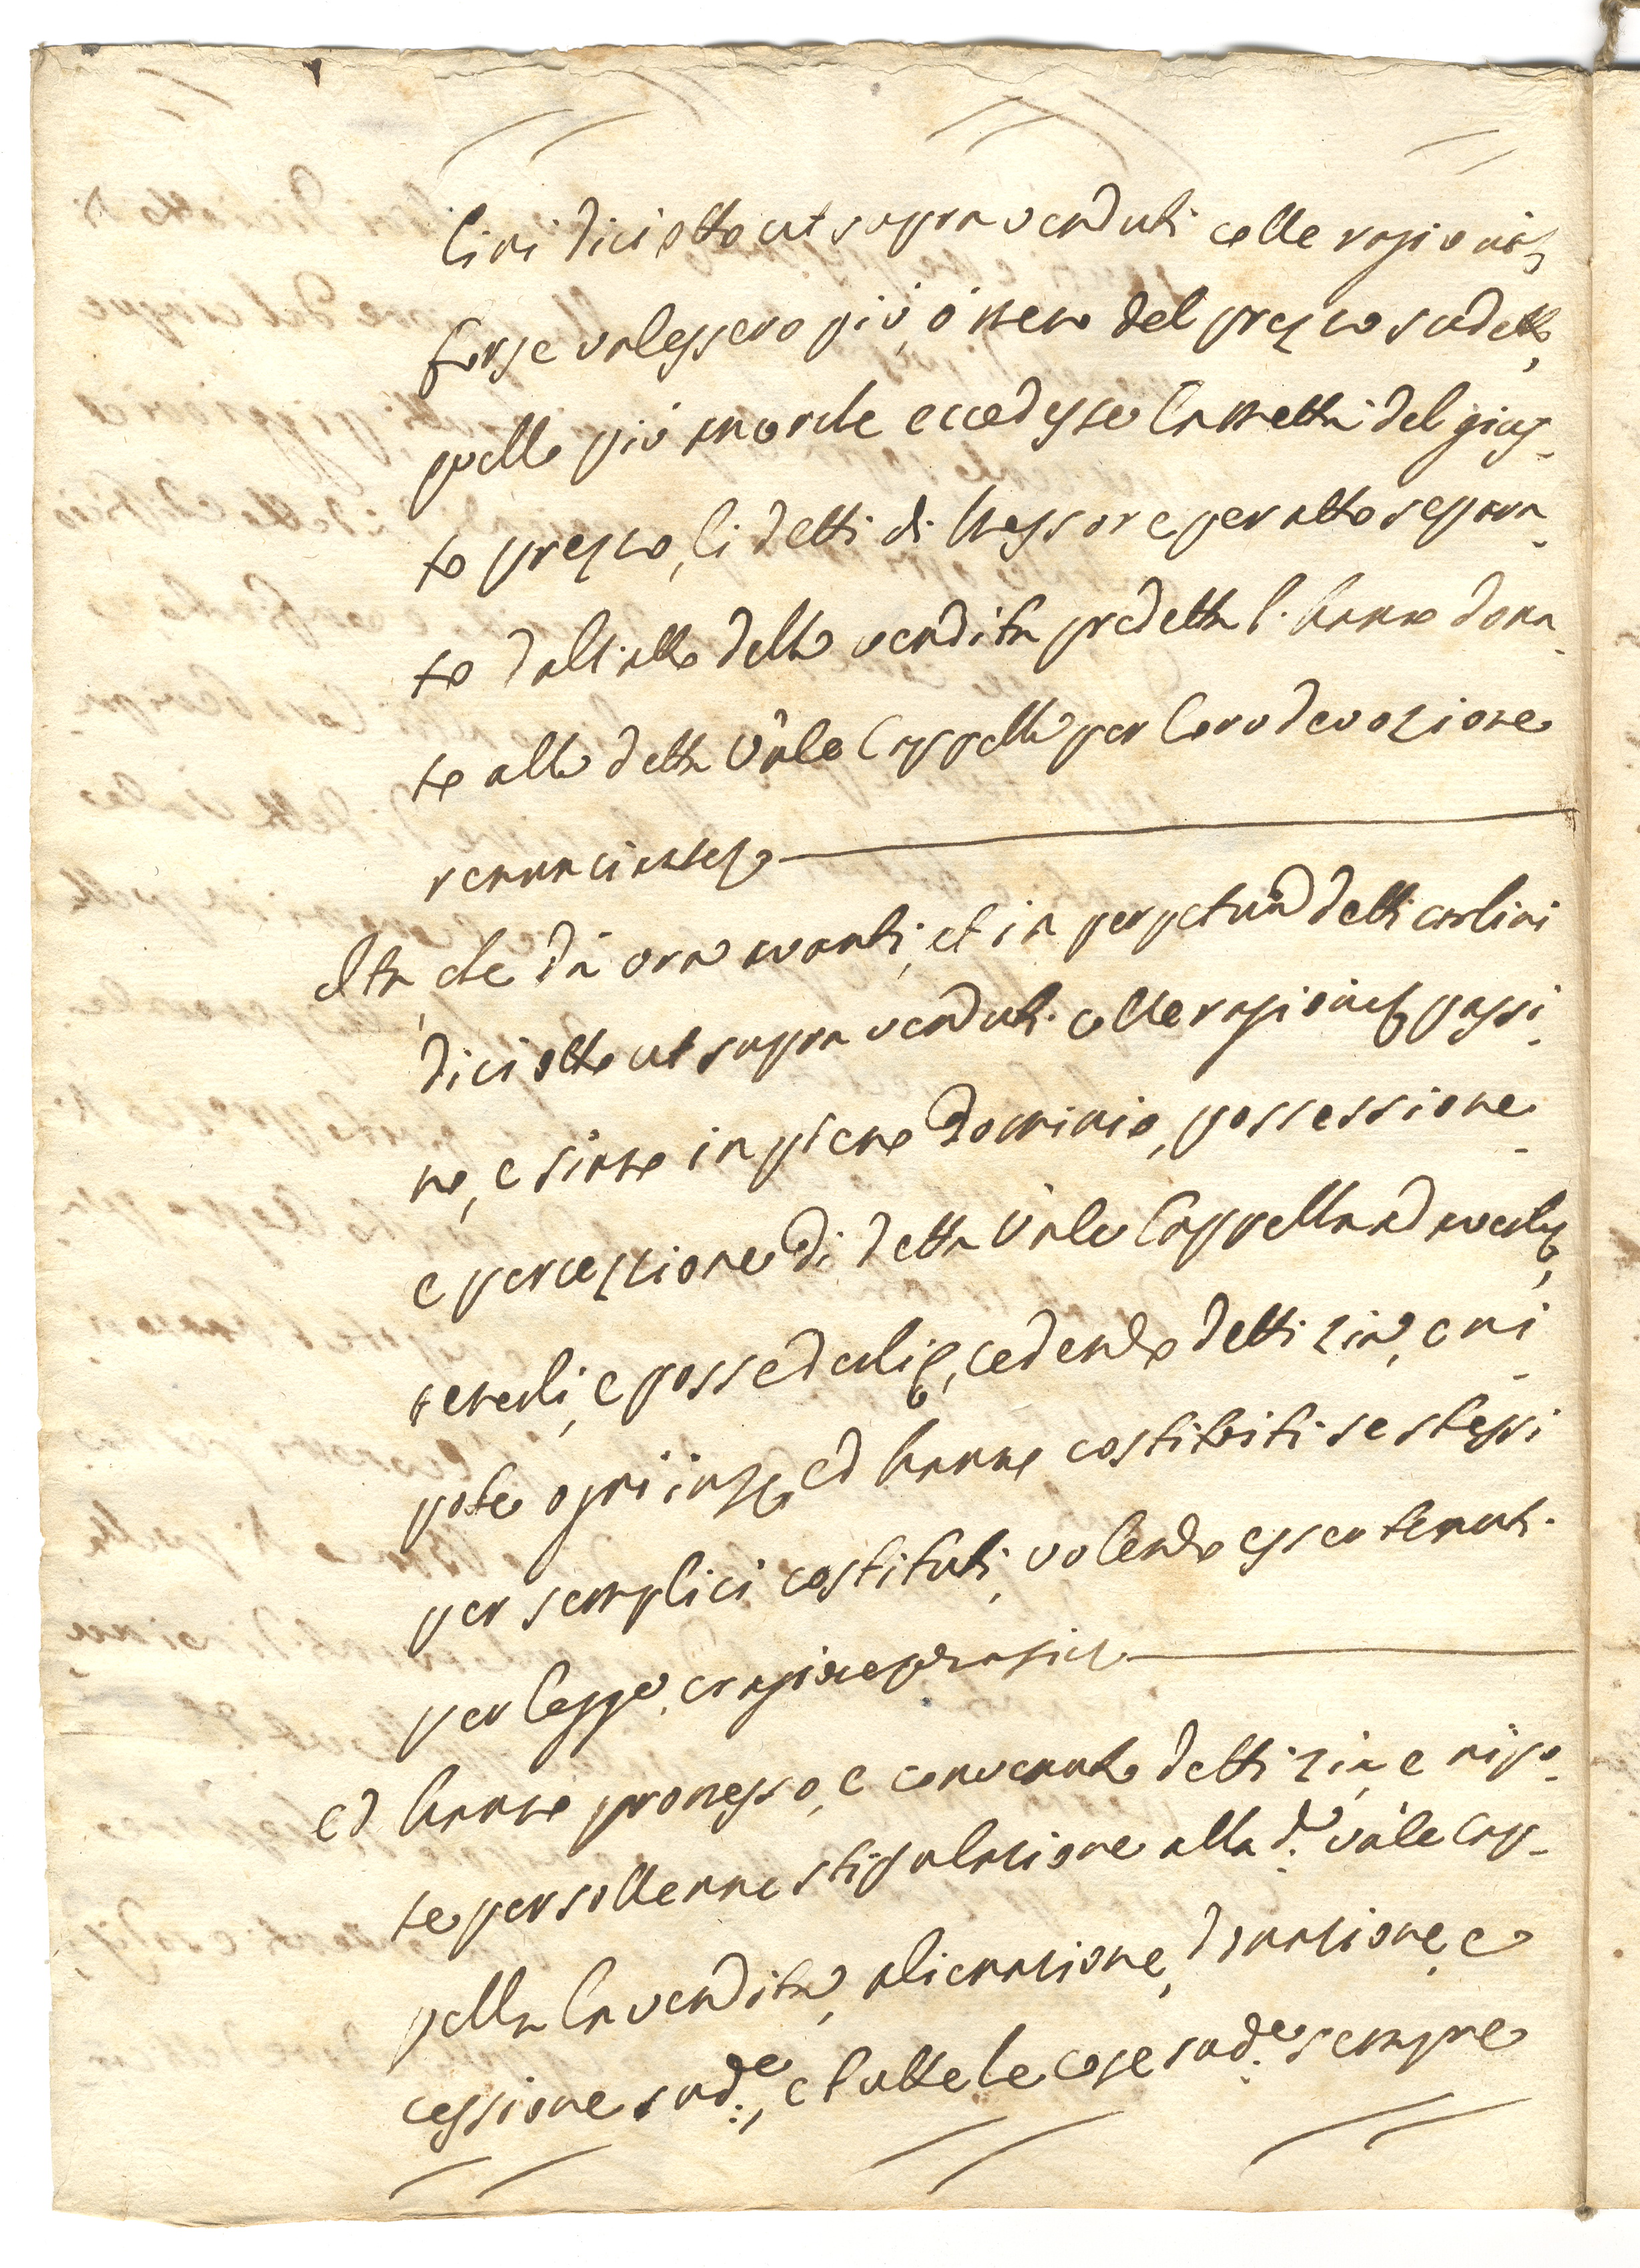 lini diciotto ut supra venduti colle ragioni
forse valessero più, ò meno del prezzo sudetto,
quello più ancorche eccedesse la metà del gius-
to prezzo, li detti di Messore per atto separa-
to dall'atto della vendita predetta l'hanno dona-
to alla detta Vñle Cappella per loro devozione
renunciando
Ita che da ora avanti, et in perpetuum detti carlini
diciotto ut supra venduti colle ragioni passi-
no, e siano in pieno dominio, possessione
e percezzione di detta Vñle Cappella ad averli,
tenerli, e possederli, cedendo detti zio, e ni-
pote ogni ius, ed hanno costituiti se stessi
per semplici costituti, volendo esser tenuti
per legge, e
ed hanno promesso, e convenuto detti zio, e nipo-
te per sollenne stipulazione alla d.ª Vñle Cap-
pella la vendita, alienazione, donazione, e
cessione sud.e, e tutte le cose sud.e sempre